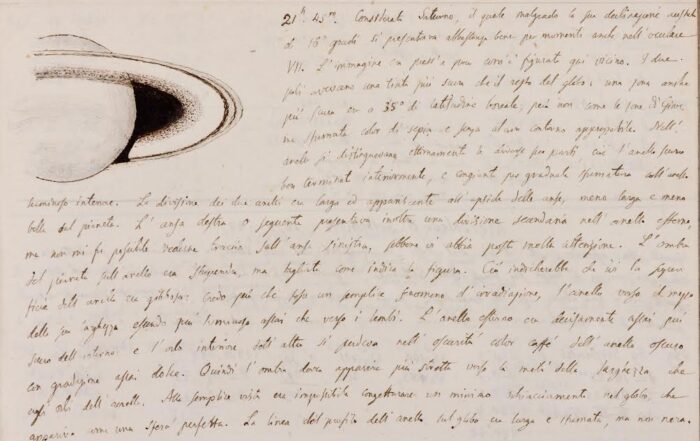 21h. 45m. Considerato Saturno, il quale malgrado la sua declinazione australe
di 16 gradi si presentava abbastanza bene per momenti anche nell'oculare
VII. L'immagine era press'a poco com'è figurata qui vicino. I due
poli avevano una tinta più scura che il resto del globo: una zona anche
più scura era a 35° di latitudine boreale, però non come le zone di Giove,
ma sfumata color di seppia e senza alcun contorno apprezzabile. Nell'
anello si distinguevano ottimamente le diverse parti cioè l'anello scuro
ben terminato interiormente, e congiunto per graduata sfumatura coll'anello
luminoso interno. La divisione dei due anelli era larga ed appariscente all'apside delle anse, meno larga e meno
bella del pianeta. L'ansa destra o seguente presentava inoltre una divisione secondaria nell'anello esterno,
ma non mi fu possibile vederne traccia sull'ansa sinistra, sebbene ci abbia posto molta attenzione. L'ombra
del pianeta sull'anello era stupenda, ma tagliata come indica la figura. Ciò indicherebbe che ivi la super
ficie dell'anello era gibbosa: credo però che fosse un semplice fenomeno d'irradiazione, l'anello verso il mezzo
della sua larghezza essendo più luminoso assai che verso i lembi. L'anello esterno era decisamente assai più
scuro dell'interno e l'orlo interiore dell'altro si perdeva nell'oscurità color caffè dell'anello oscuro
con gradazione assai dolce. Quindi l'ombra dovea apparire più stretta verso la metà della larghezza, che
negli orli dell'anello. Alla semplice vista era impossibile congetturare un minimo schiacciamento nel globo, che
appariva come una sfera perfetta. La linea del profilo dell'anello sul globo era larga e sfumata, ma non nera.